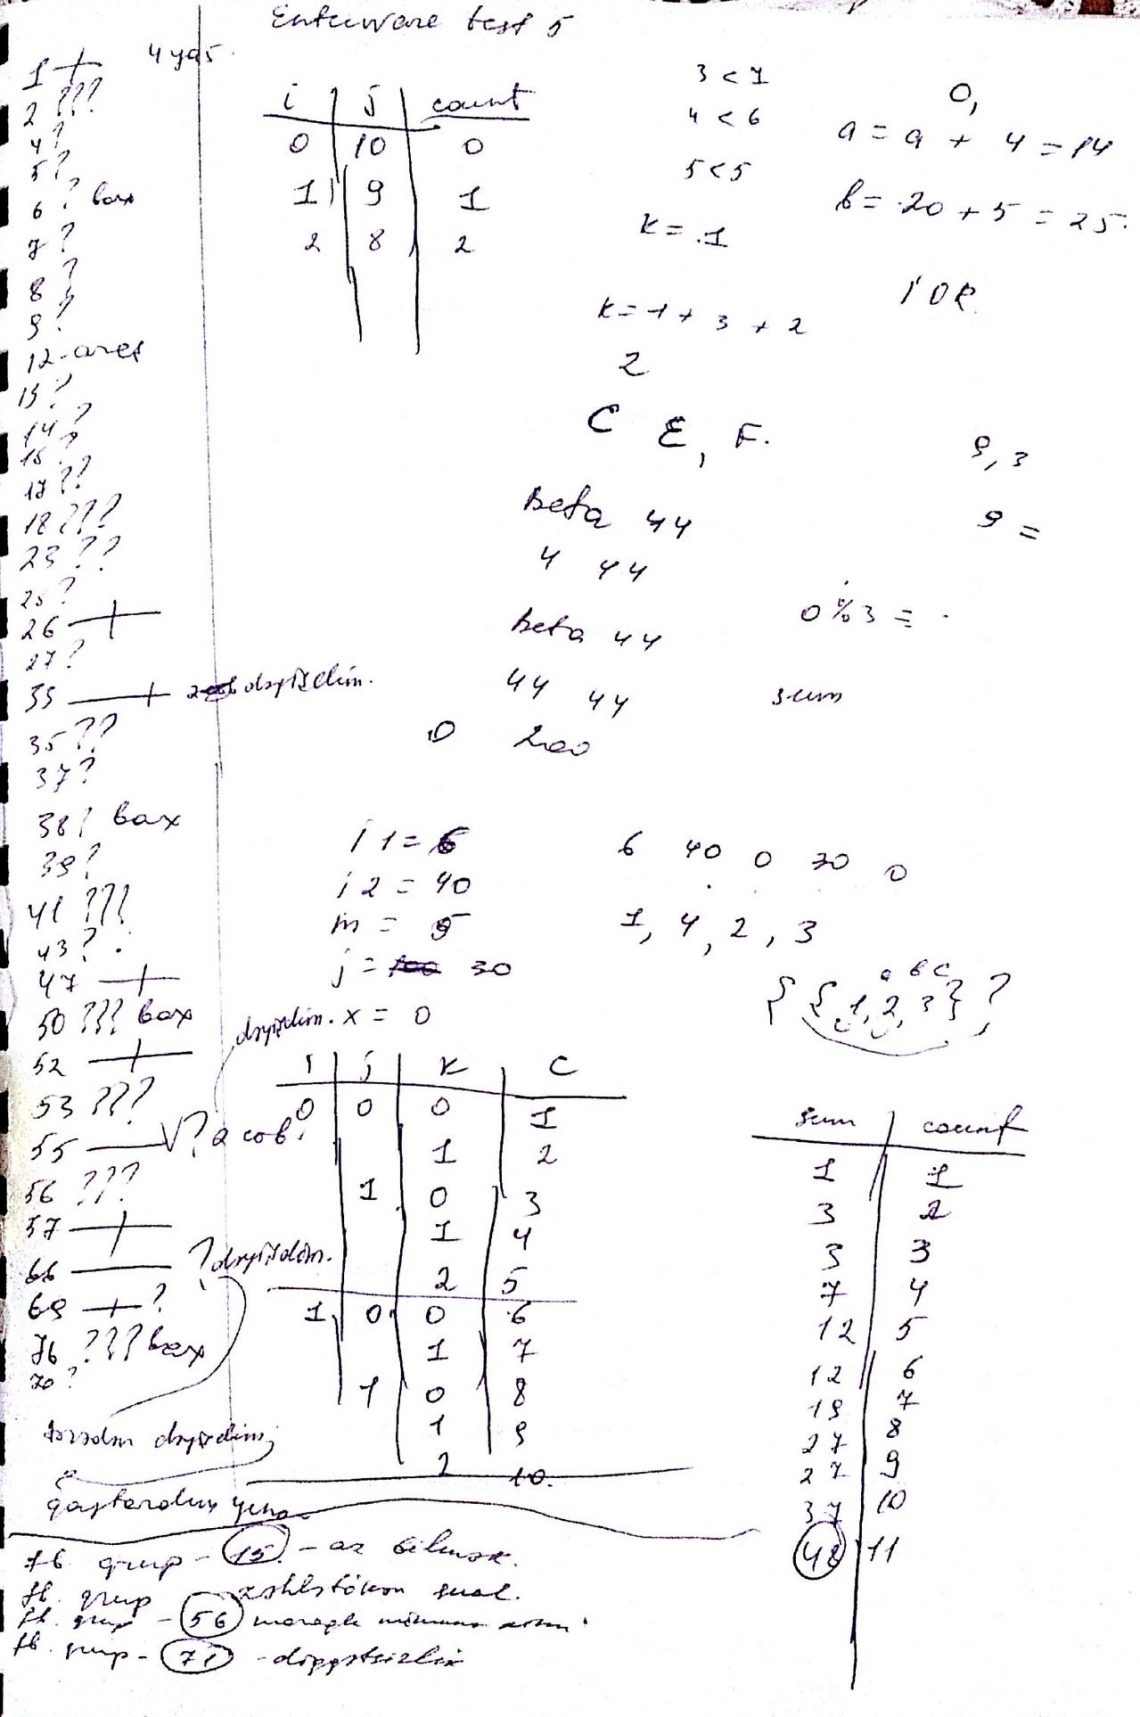 Enthuware test 5
1 + 4 ya 5.
2 ???
4 ?
5 ?
6 ? bax
7 ?
8 ?
9 ?
12 -
13 ?
14 ?
16 ?
17 ??
18 ???
23 ??
25 ?
26 +
27 ?
33 + dəyişdim.
35 ??
37 ?
38 ? bax
39 ?
41 ???
43 ? .
47 +
50 ??? bax
52 +
53 ???
55 V ? 2 cab.
56 ???
57 +
66 ? dəyişdim.
69 + ?
76 ??? bax
70 ?
dəyişdim
i j count
0 10 0
1 9 1
2 8 2
3 < 7
4 < 6
5 < 5
k = 1
k = 1 + 3 + 2
2
C E, F.
0,
a = a + 4 = 14
b = 20 + 5 = 25.
9, 3
9 =
Beta 44
4 44
Beta 44
44 44
0 200
0 % 3 = .
sum
i 1 = 6
i 2 = 40
m = 5
j = 30
6 40 0 30 0
1, 4, 2, 3
a b c
{ { 1, 2, 3 } }
dəyişdim. x = 0
i j k C
0 0 0 1
1 2
1 0 3
1 4
2 5
1 0 0 6
1 7
1 0 8
1 9
2 10.
sum count
1 1
3 2
3 3
7 4
12 5
12 6
19 7
27 8
27 9
37 10
48 11
fb. qrup - 15 - az bilmək.
fb. qrup sual.
fb. qrup - 56
fb. qrup - 71 - diqqətsizlik